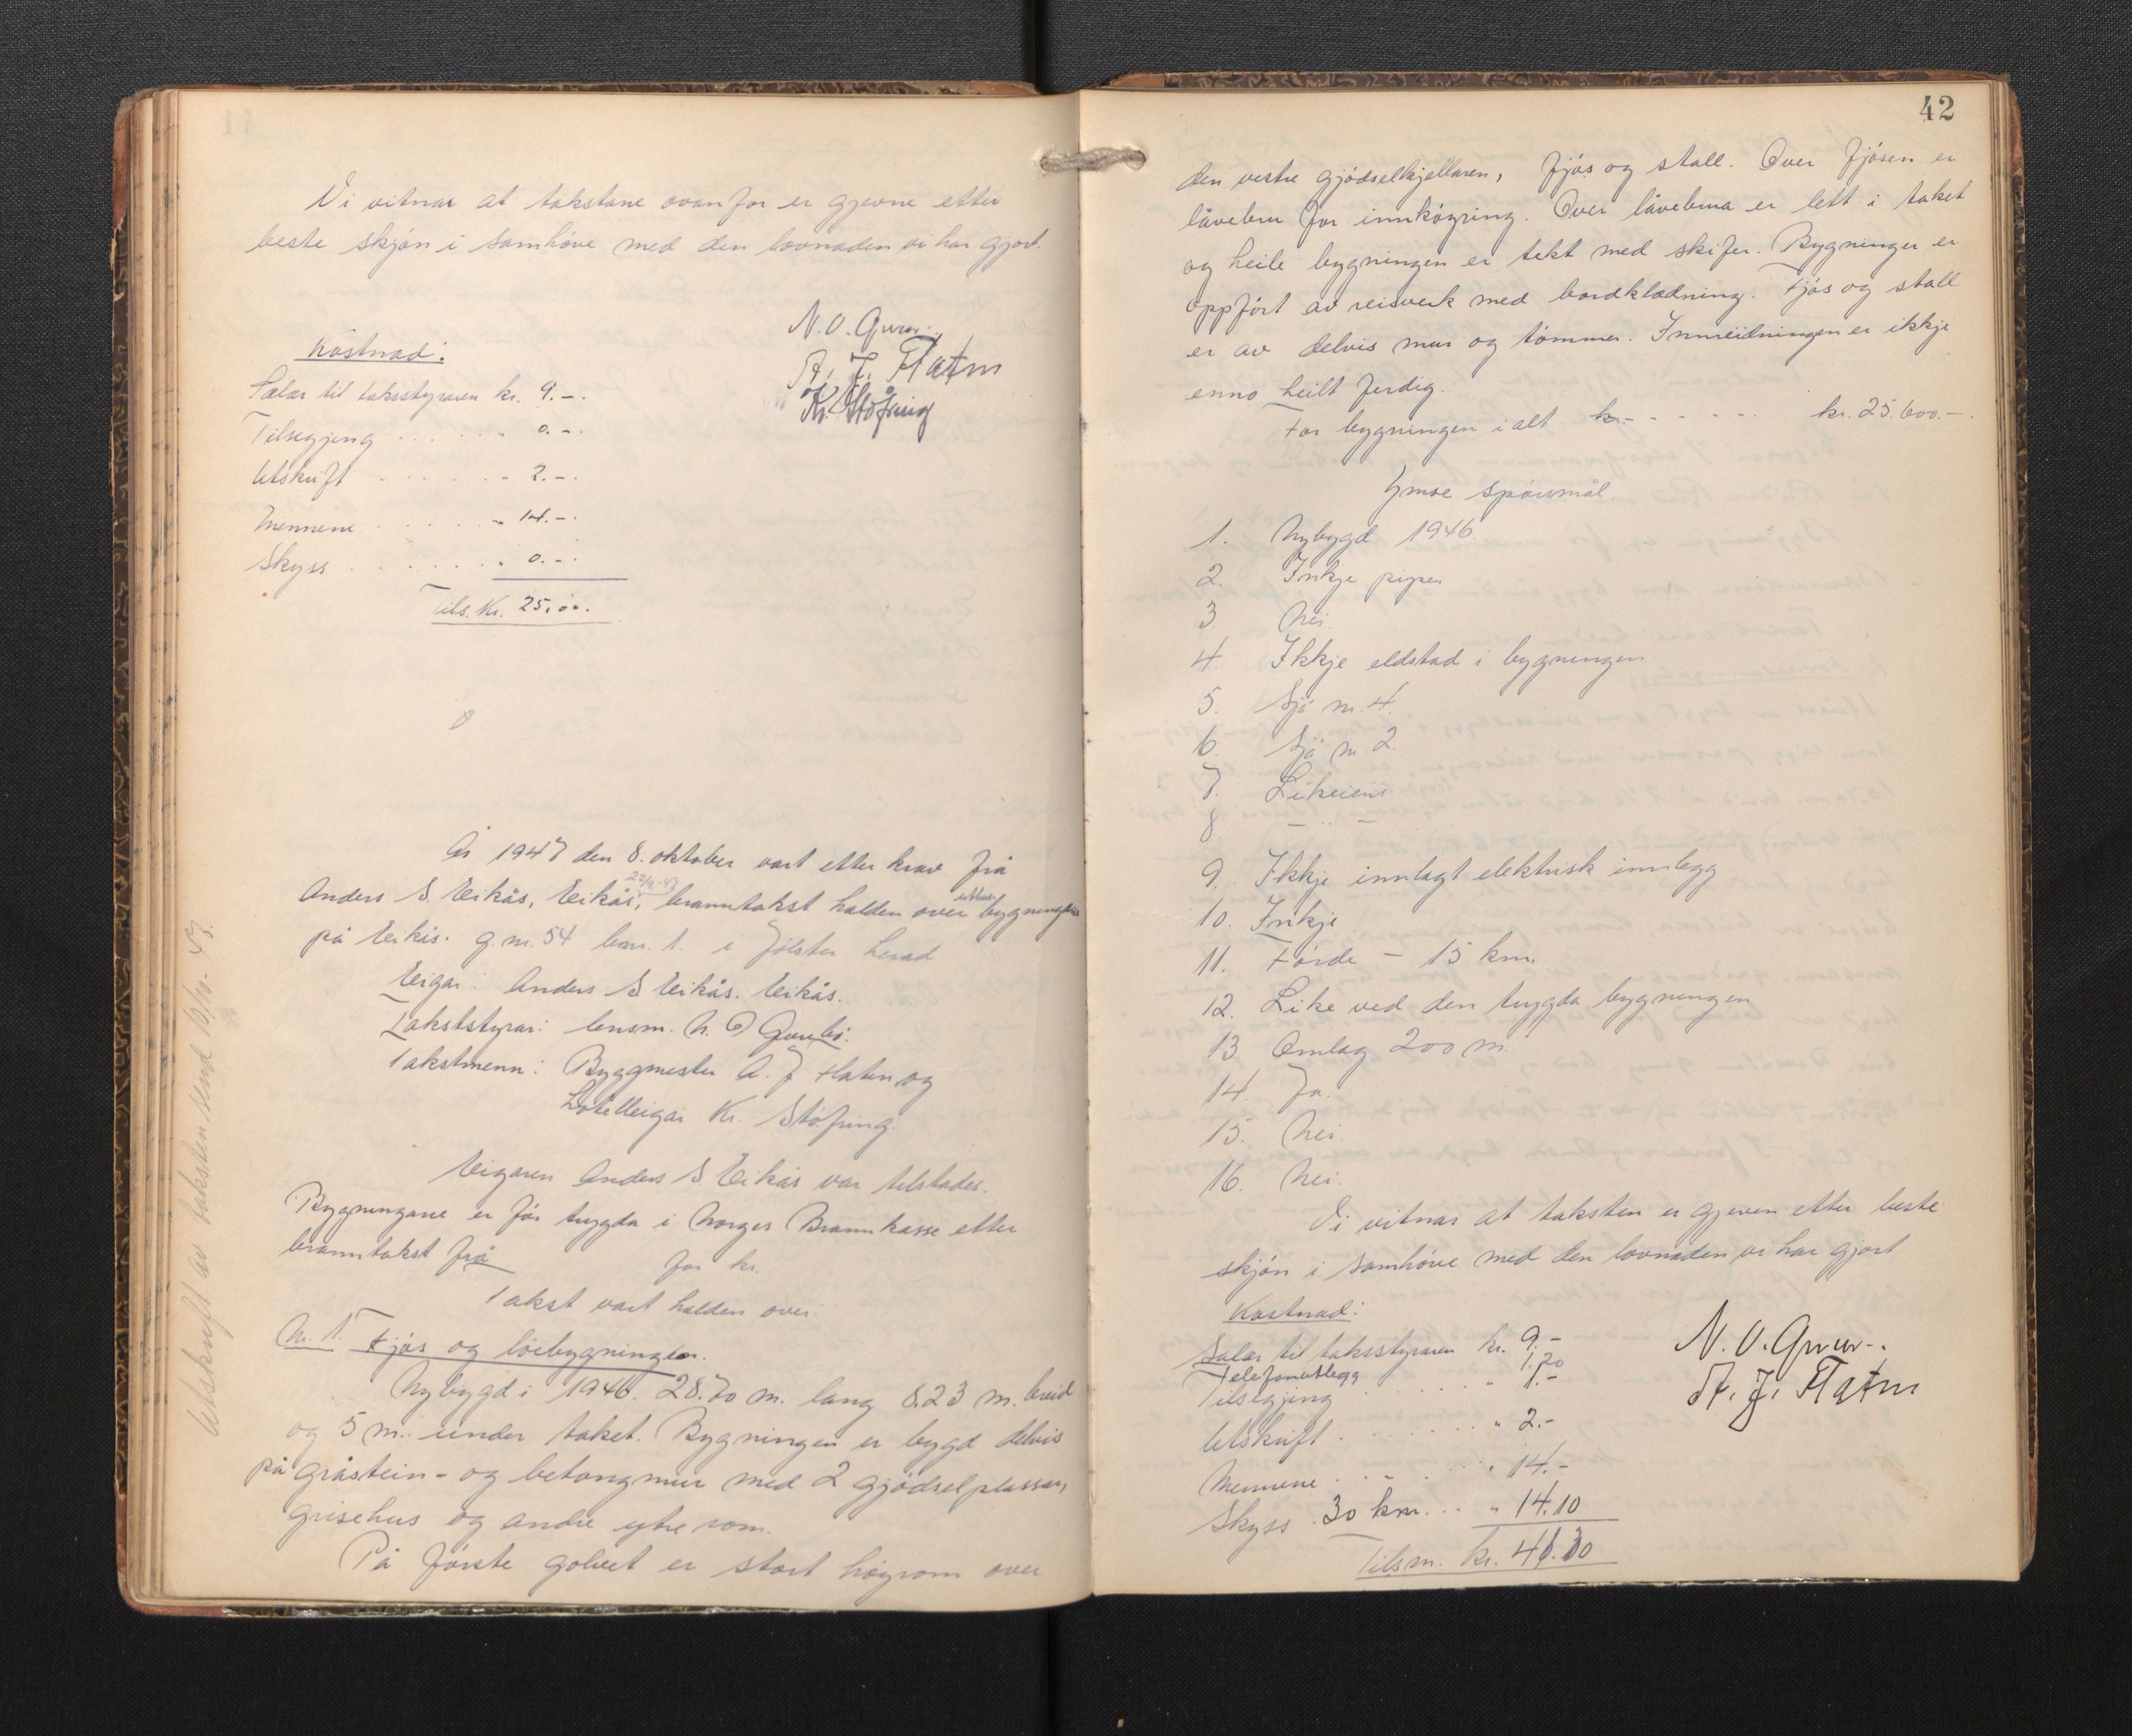 Vi vitnar at takstane ovanfor er gjevne etter
beste skjøn i samhøve med den lovnaden vi har gjort.
N. O. 
A. J. Flaten
Kr. Støfring
Kostnad:
Salær til takststyraren kr. 9.-.
Tilsegjing . . . . . . " 0.-.
Utskrift . . . . . . " 2.-.
Mennene . . . . . . " 14.-.
Skyss . . . . . . . " 0.-.
Tils. Kr. 25,00.
År 1947 den 8. oktober vart etter krav frå
Anders S. Eikås, Eikås, branntakst halden over bygningen
på Eikås. g.nr. 54 bnr. 1. i Jølster herad
Eigar: Anders S Eikås. Eikås.
Takststyrar: lensm. N. O
Takstmenn: Byggmester A. J Flaten og
Hotelleigar Kr. Støfring.
Eigaren Anders S Eikås var tilstades.
Bygningane er før trygda i Norges Brannkasse etter
branntakst frå for kr.
Takst vart halden over:
Nr. 1. Fjøs og løebygningen.
Nybygd i 1946. 28.70 m. lang 8.23 m. breid
og 5 m. under taket. Bygningen er bygd delvis
på gråstein- og betongmur med 2 gjødselplassar,
grisehus og andre ytre rom.
På første golvet er stort høyrom over
Utskrift av taksten send 16/10-47.
42
den vestre gjødselkjellaren, fjøs og stall. Over fjøsen er
låvebru for innkøyring. Over låvebrua er lett i taket
og heile bygningen er tekt med skifer. Bygningen er
oppført av reisverk med bordklædning. Fjøs og stall
er av delvis mur og tømmer. Innreidningen er ikkje
enno heilt ferdig.
For bygningen i alt kr. - - - - - - kr. 25.600.-.
Ymse spørsmål.
1. Nybygd 1946.
2. Inkje piper
3. Nei.
4. Ikkje eldstad i bygningen
5. Sjå nr. 4.
6. Sjå nr. 2.
7. Likeiens
8. - " -
9. Ikkje innlagt elektrisk innlegg
10. Inkje
11. Førde - 15 km.
12. Like ved den trygda bygningen
13 Omlag 200 m.
14. Ja.
15. Nei.
16. Nei.
Vi vitnar at taksten er gjeven etter beste
skjøn i samhøve med den lovnaden vi har gjort
Kostnad:
Salær til takststyraren kr. 9.-
Telefonutlegg 1.20
Tilsegjing . . . . . " 1.-
Utskrift . . . . . . " 2.-
Mennene . . . . . . " 14.-
Skyss 30 km. . . " 14.10
Tilsm. kr. 41.30
N. O.
A. J. Flaten